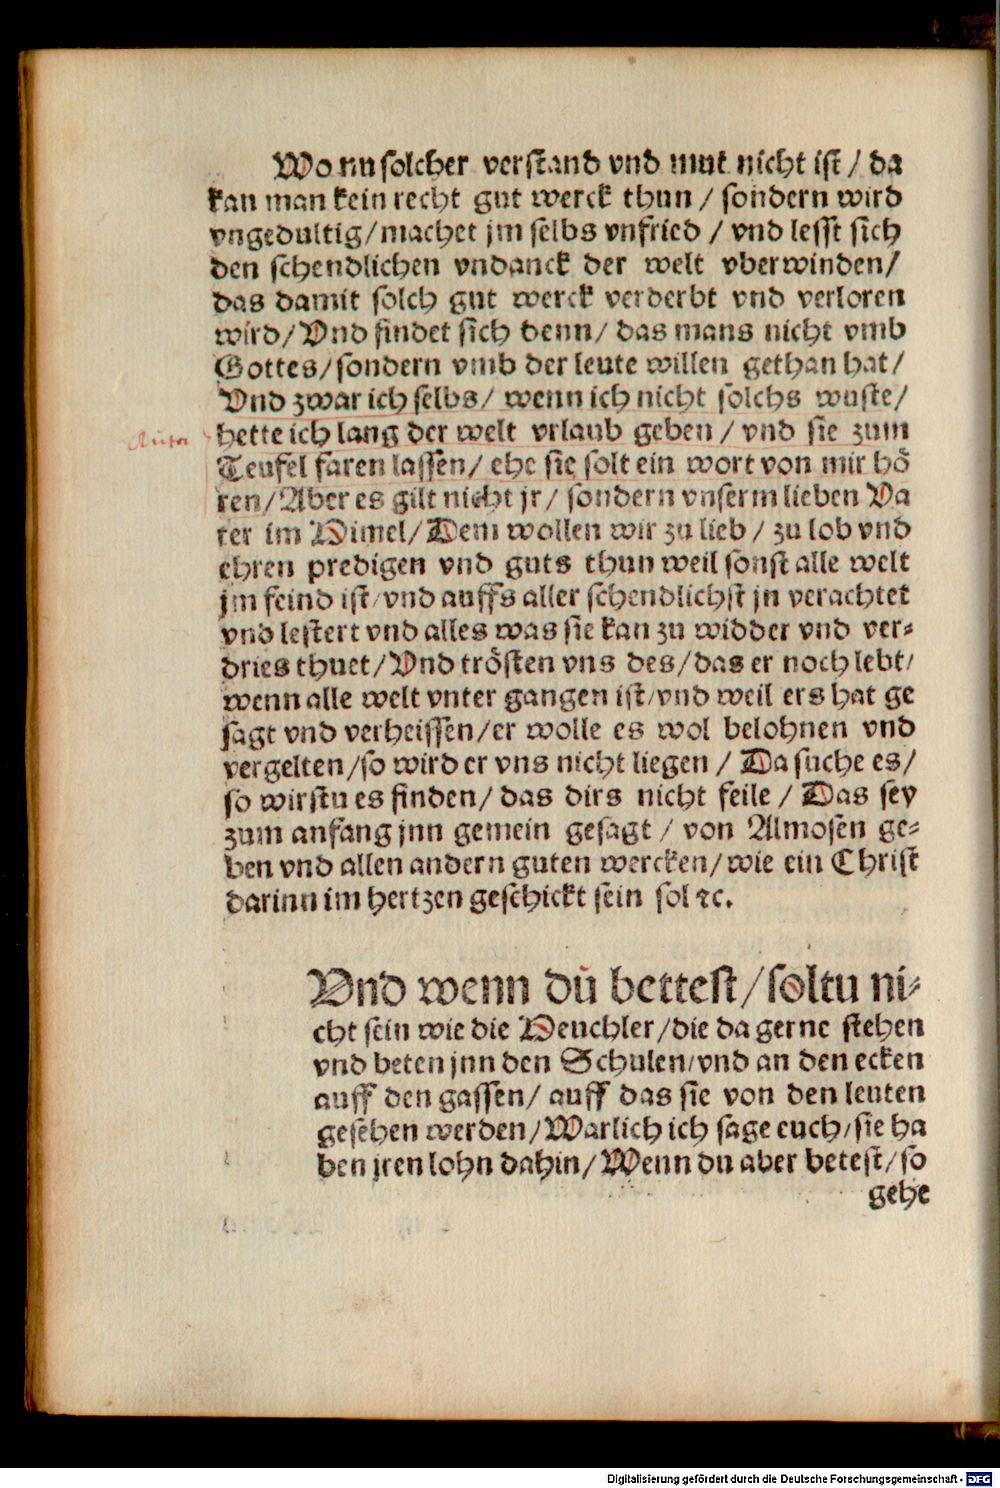 Wo nu solcher verstand vnd mut nicht ist / da
kan man kein recht gut werck thun / sondern wird
vngedultig / machet jm selbs vnfried / vnd lesst sich
den schendlichen vndanck der welt vberwinden /
das damit solch gut werck verderbt vnd verloren
wird / Vnd findet sich denn / das mans nicht vmb
Gottes / sondern vmb der leute willen gethan hat /
Vnd zwar ich selbs / wenn ich nicht solchs wuste /
hette ich lang der welt vrlaub geben / vnd sie zum
Teufel faren lassen / ehe sie solt ein wort von mir hö
ren / Aber es gilt nicht jr / sondern vnserm lieben Va
ter im Himel / Dem wollen wir zu lieb / zu lob vnd
ehren predigen vnd guts thun weil sonst alle welt
jm feind ist / vnd auffs aller schendlichst jn verachtet
vnd lestert vnd alles was sie kan zu widder vnd ver⸗
dries thuet / Vnd trösten vns des / das er noch lebt /
wenn alle welt vnter gangen ist / vnd weil ers hat ge
sagt vnd verheissen / er wolle es wol belohnen vnd
vergelten / so wird er vns nicht liegen / Da suche es /
so wirstu es finden / das dirs nicht feile / Das sey
zum anfang jnn gemein gesagt / von Almosen ge⸗
ben vnd allen andern guten wercken / wie ein Christ
darinn im hertzen geschickt sein sol ꝛc.
Vnd wenn du bettest / soltu ni⸗
cht sein wie die Heuchler / die da gerne stehen
vnd beten jnn den Schulen / vnd an den ecken
auff den gassen / auff das sie von den leuten
gesehen werden / Warlich ich sage euch / sie ha
ben jren lohn dahin / Wenn du aber betest / so
gehe
Digitalisierung gefördert durch die Deutsche Forschungsgemeinschaft - DFG